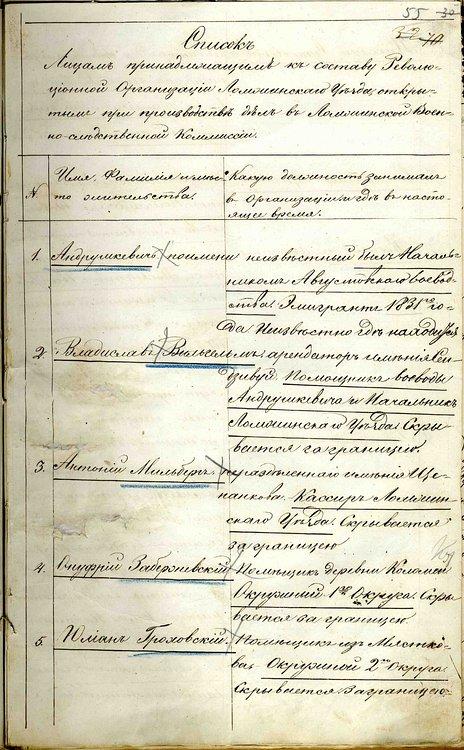 55 30
32 40
Списокъ
Лицамъ принадлежащимъ къ составу Револю-
ціонной Организаціи Ломжинскаго Уѣзда, откры-
тымъ при производствѣ дѣлъ въ Ломжинской Воен-
но-слѣдственной Коммиссіи.
№
Имя, Фамилія и мѣс-
то жительства.
Какую должность занималъ
въ Организаціи и гдѣ въ насто-
ящее время.
1. Андрушкевичъ, по имени неизвѣстный былъ Началь-
никомъ Августовскаго воевод-
ства. Эмигрантъ 1831го го-
да. Неизвѣстно гдѣ находится
2. Владиславъ Вильгельмъ, арендаторъ имѣнія
Помощникъ воеводы
Андрушкевича и Начальникъ
Ломжинскаго Уѣзда. Скры-
вается за границею.
3. Антоній Мильбергъ, имѣнія Ще-
панкова. Кассиръ Ломжин-
скаго Уѣзда. Скрывается
за границею
4. Онуфрій Забержевскій, Помѣщикъ деревни
Окружний 1го Округа. Скры-
вается за границею
5. Юліанъ Гроховскій, Помѣщикъ изъ Мястко-
ва. Окружний 2го Округа
Скрывается за границею.